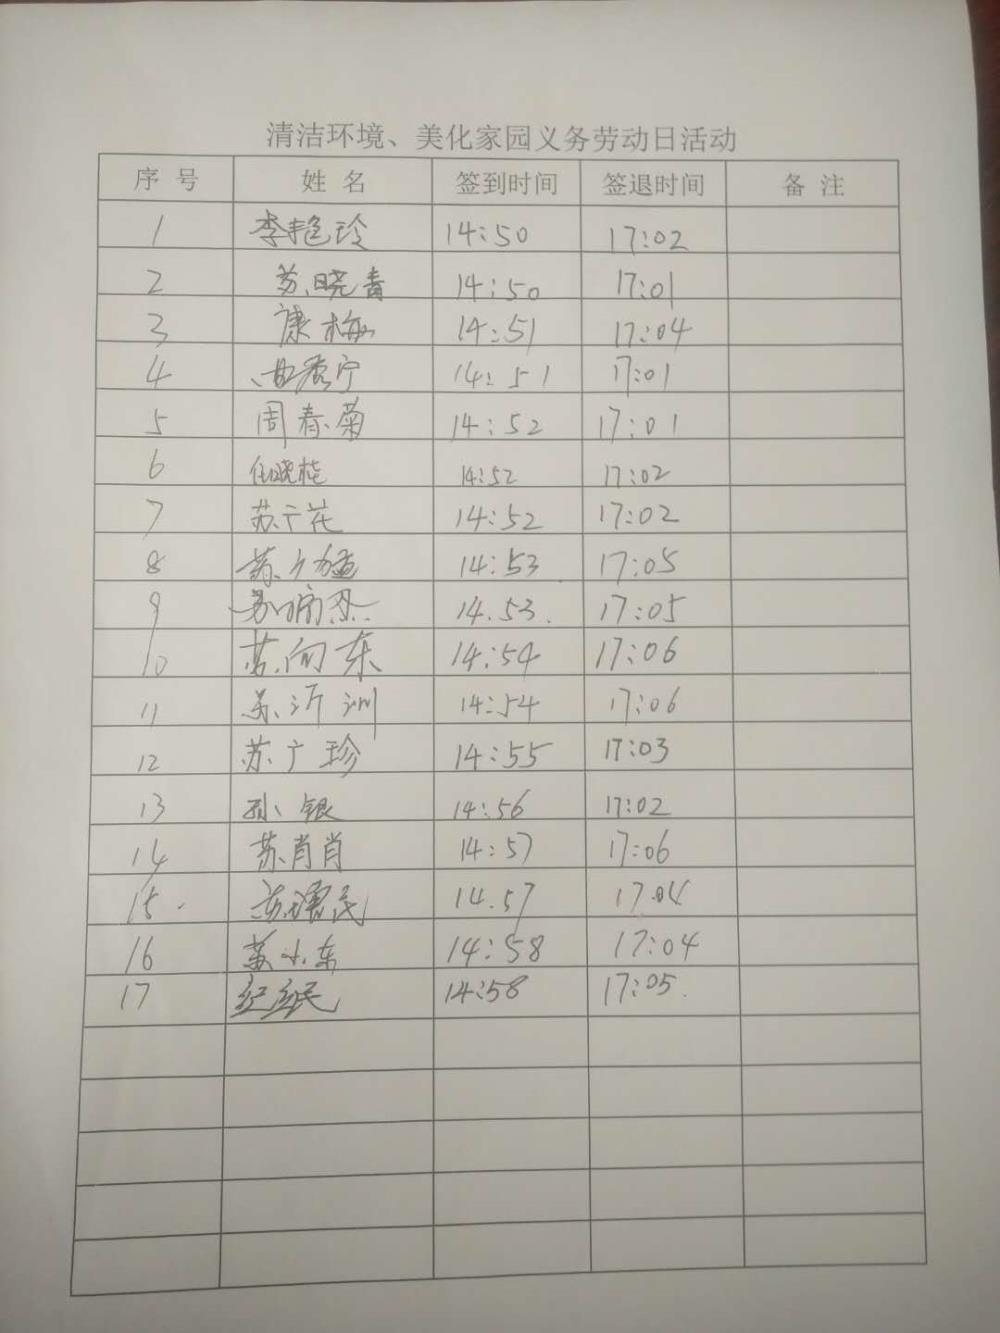 清洁环境、美化家园义务劳动日活动
序号 姓名 签到时间 签退时间 备注
1 李艳玲 14:50 17:02
2 苏晓青 14:50 17:01
3 康梅 14:51 17:04
4 14:51 17:01
5 周春菊 14:52 17:01
6 任晓桂 14:52 17:02
7 苏广花 14:52 17:02
8 苏广 14:53 17:05
9 14.53. 17:05
10 苏向东 14:54 17:06
11 苏沂洲 14:54 17:06
12 苏广珍 14:55 17:03
13 孙银 14:56 17:02
14 苏肖肖 14:57 17:06
15. 民 14.57 17.04
16 苏小东 14:58 17:04
17 民 14:58 17:05.